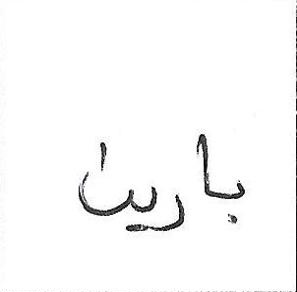 باريس